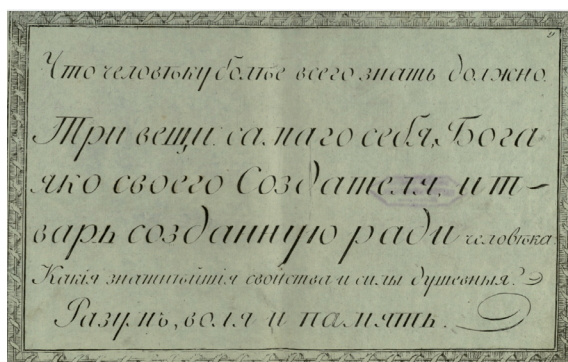 Что человѣку болѣе всего знать должно.
Три вещи: самаго себя, Бога
яко своего Создателя, и т-
варь созданную ради человѣка.
Какія знатнѣйшія свойства и силы душевныя?
Разумъ, воля и память.